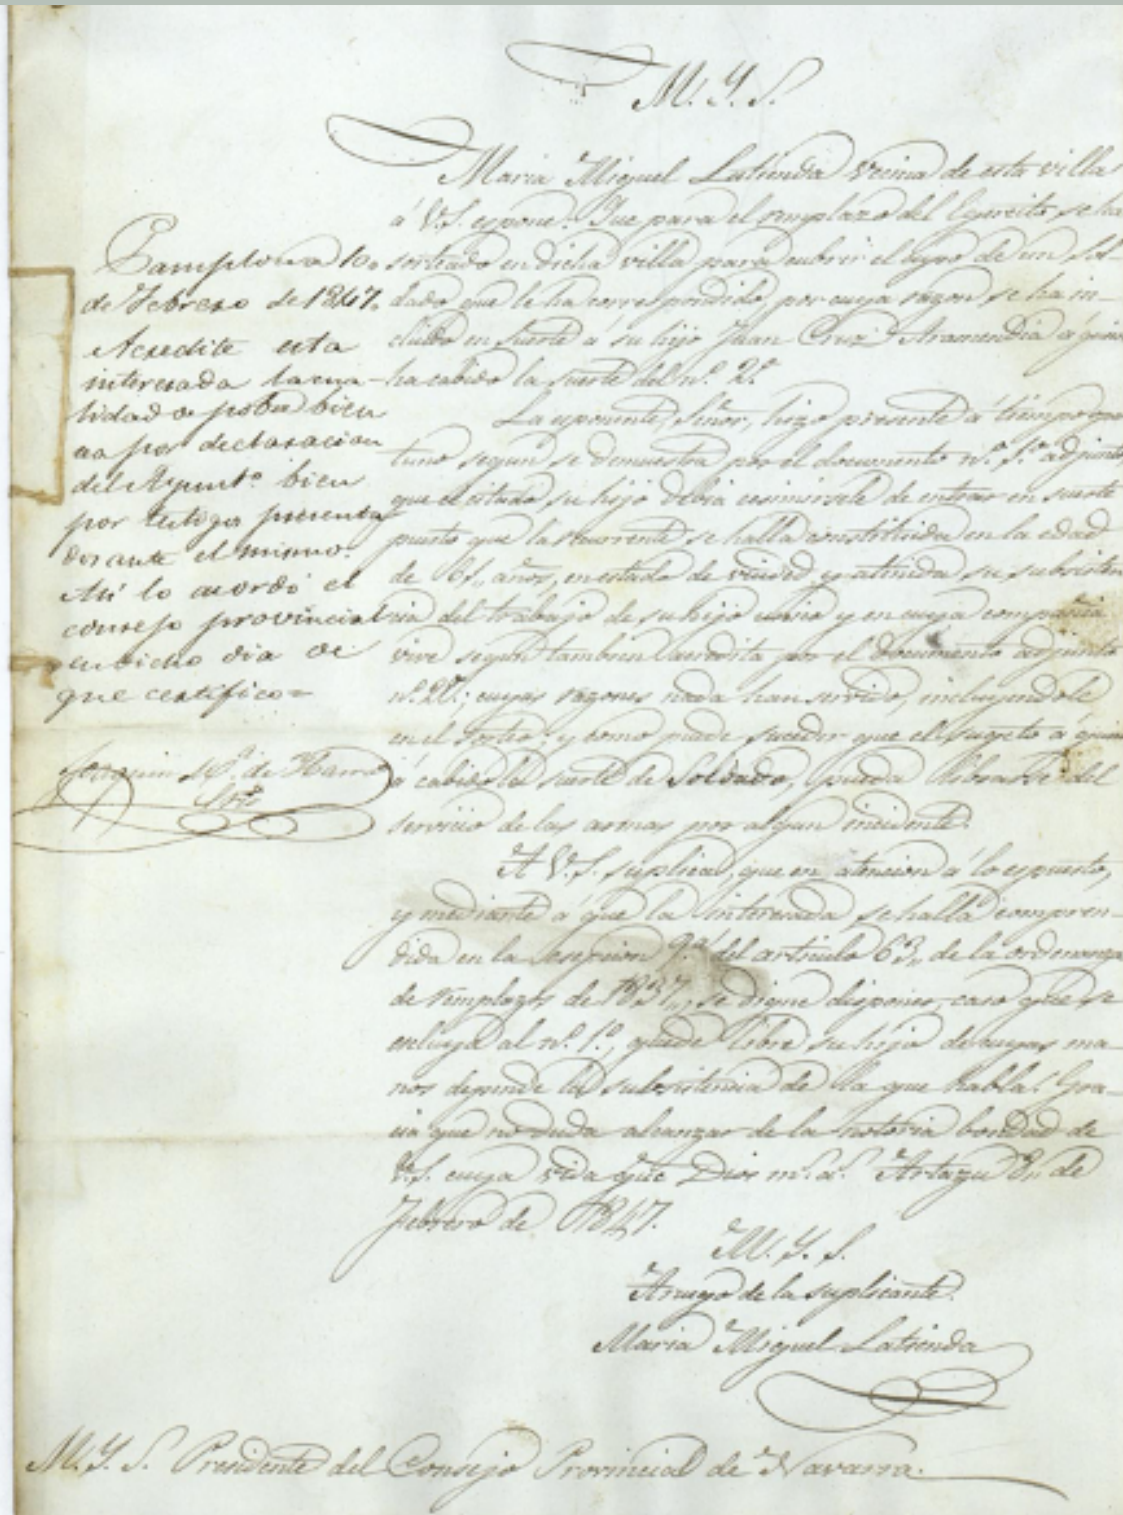 M. Y. S.
Maria Miguel Latienda vecina de esta villa
á V.S. espone: Que para el remplazo del Egercito se ha
sorteado en dicha villa para cubrir el cupo de un Sol-
dado que le ha correspondido, por cuya razon se ha in-
cluido en suerte á su hijo Juan Cruz Aramendia á quien
ha cabido la suerte del nº. 2º.
La esponente, Señor, hizo presente á tiempo opor
tuno segun se demuestra por el documento nº. 1.º adjunto,
que el citado su hijo debia eximirsele de entrar en suerte
puesto que la recurrente se halla constituida en la edad
de 61,, años, en estado de viudez y atenida su subsisten
cia del trabajo de su hijo unico y en cuya compañia
vive segun tambien acredita por el documento adjunto
nº. 2º.; cuyas razones nada han servido, incluyendole
en el sorteo; y como puede suceder que el sugeto á quien
á cabido la suerte de Soldado, pueda librarse del
servicio de las armas por algun incidente.
A V.S. suplica, que en atencion á lo espuesto,
y mediante á que la interesada se halla compren-
dida en la esepcion 9.ª del articulo 63,, de la ordenanza
de remplazos de 1837,, se digne disponer, caso que se
escluya al nº. 1º., quede libre su hijo de cuyas ma-
nos depende la subsistencia de la que habla: Gra-
cia que no duda alcanzar de la notoria bondad de
V.S. cuya vida gûe Dios m.s a.s Artazu 8,, de
Febrero de 1847.
M. Y. S.
Aruego de la suplicante.
Maria Miguel Latienda
M. Y. S. Presidente del Consejo Provincial de Navarra.
Pamplona 10,,
de Febrero de 1847.
Acredite esta
interesada la cua-
lidad de pobre bien
sea por declaracion
del Ayunt.º bien
por testigos presenta
dos ante el mismo.
Asi lo acordó el
consejo provincial
en dicho dia de
que certifico=
Joaquin
Srio